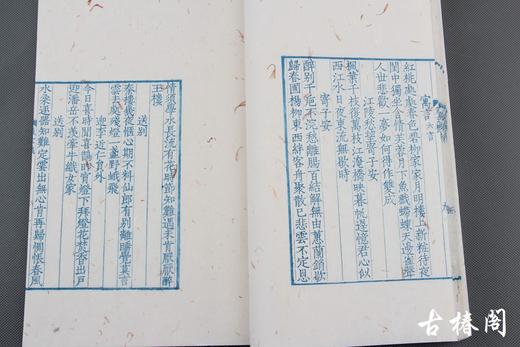 寓言
紅桃處處春色碧柳家家月明樓上新粧待夜
閨中獨坐含情芙蓉月下魚戲螮蝀天邊雀聲
人世悲歡一夢如何得作雙成
江陵愁望寄子安
楓葉千枝復萬枝江橋掩映暮帆遲憶君心似
西江水日夜東流無歇時
寄子安
醉別千巵不浣愁離腸百結解無由蕙蘭銷歇
歸春圃楊柳東西絆客舟聚散已悲雲不定恩
情須學水長流有花時節知難遇未肯厭厭醉
玉樓
送別
秦樓幾夜愜心期不料仙郎有別離睡覺莫言
雲去處殘燈一盞野蛾飛
迎李近仁員外
今日喜時聞喜鵲昨宵燈下拜燈花焚香出戶
迎潘岳不羨牽牛織女家
送別
水柔逐器知難定雲出無心肯再歸惆悵春風
古椿閣